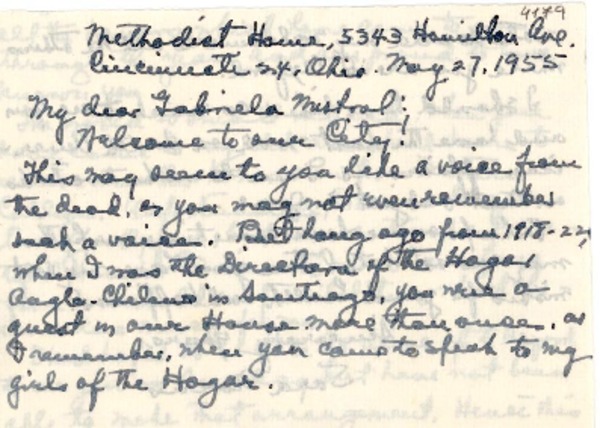 4179
Methodist Home, 5343 Hamilton Ave.
Cincinnati 24, Ohio. May 27, 1955
My dear Gabriela Mistral:
Welcome to our City!
This may seem to you like a voice from
the dead, or you may not even remember
such a voice. But long ago from 1918-22,
when I was the Directora of the Hogar
Anglo-Chileno in Santiago, you were a
guest in our House more than once, as
I remember, when you came to speak to my
girls of the Hogar.